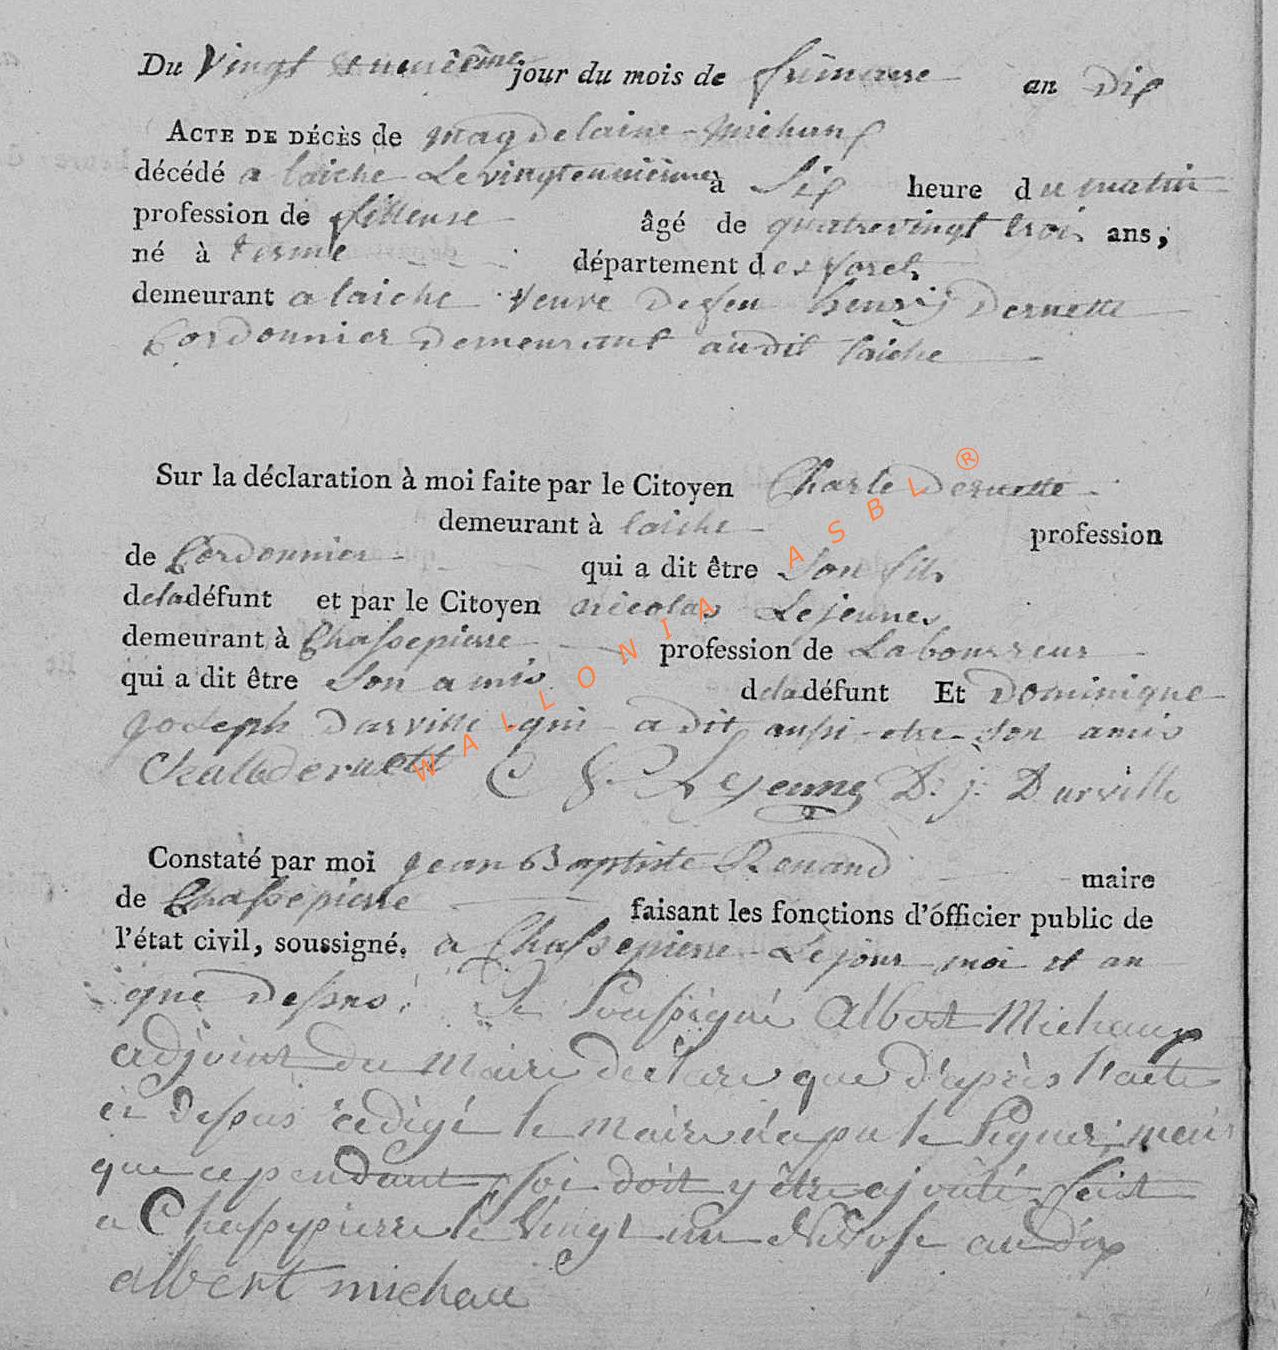 Du Vingt euniême jour du mois de frimaire an Dix
ACTE DE DÉCÈS de magdelaine michaux
décédé a laiche Le vingteunième à Six heure du matin
profession de filleuse âgé de quatrevingt trois ans,
né à termes département des forets
demeurant a laiche veuve De feu henri Dernette
Cordonnier Demeurant audit laiche
Sur la déclaration à moi faite par le Citoyen Charle Dernette
demeurant à laiche profession
de Cordonnier qui a dit être Son fils
dela défunt et par le Citoyen nicolas Lejeunes
demeurant à Chassepierre profession de Laboureur
qui a dit être Son amis dela défunt Et Dominique
joseph Darville qui a dit aussi etre son amis
Lejeune D: j: Darville
Constaté par moi jean Baptiste Renaud maire
de Chassepierre faisant les fonctions d'officier public de
l'état civil, soussigné. a Chassepierre Le jour moi et an
que Dessus. Je Soussigné Albert Michaux
adjoint du Maire déclare que d'après l'acte
ci Dessus rédigé le Maire n'a pu le Signer, mais
que cependant foi doit y être ajouté fait
a Chassepierre le Vingt un Nivose an dix
albert michau
WALLONIA ASBL ®